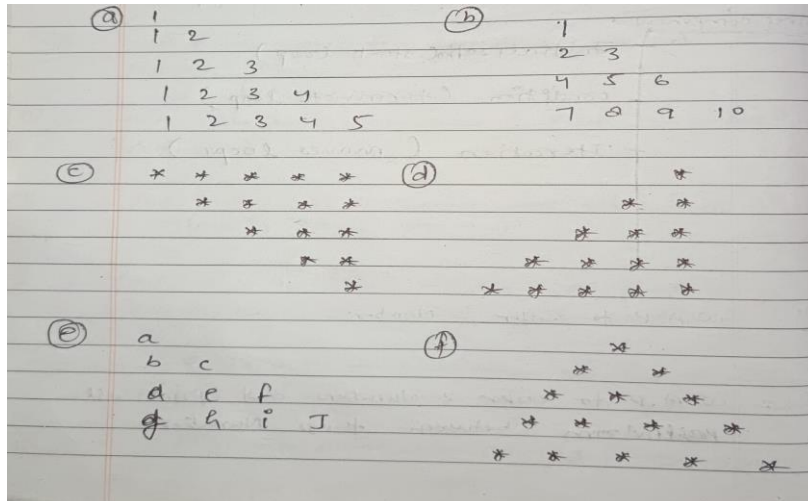 (a) 1
1 2
1 2 3
1 2 3 4
1 2 3 4 5
(b) 1
2 3
4 5 6
7 8 9 10
(c) * * * * *
* * * *
* * *
* *
*
(d) *
* *
* * *
* * * *
* * * * *
(e) a
b c
d e f
g h i J
(f) *
* *
* * *
* * * *
* * * * *